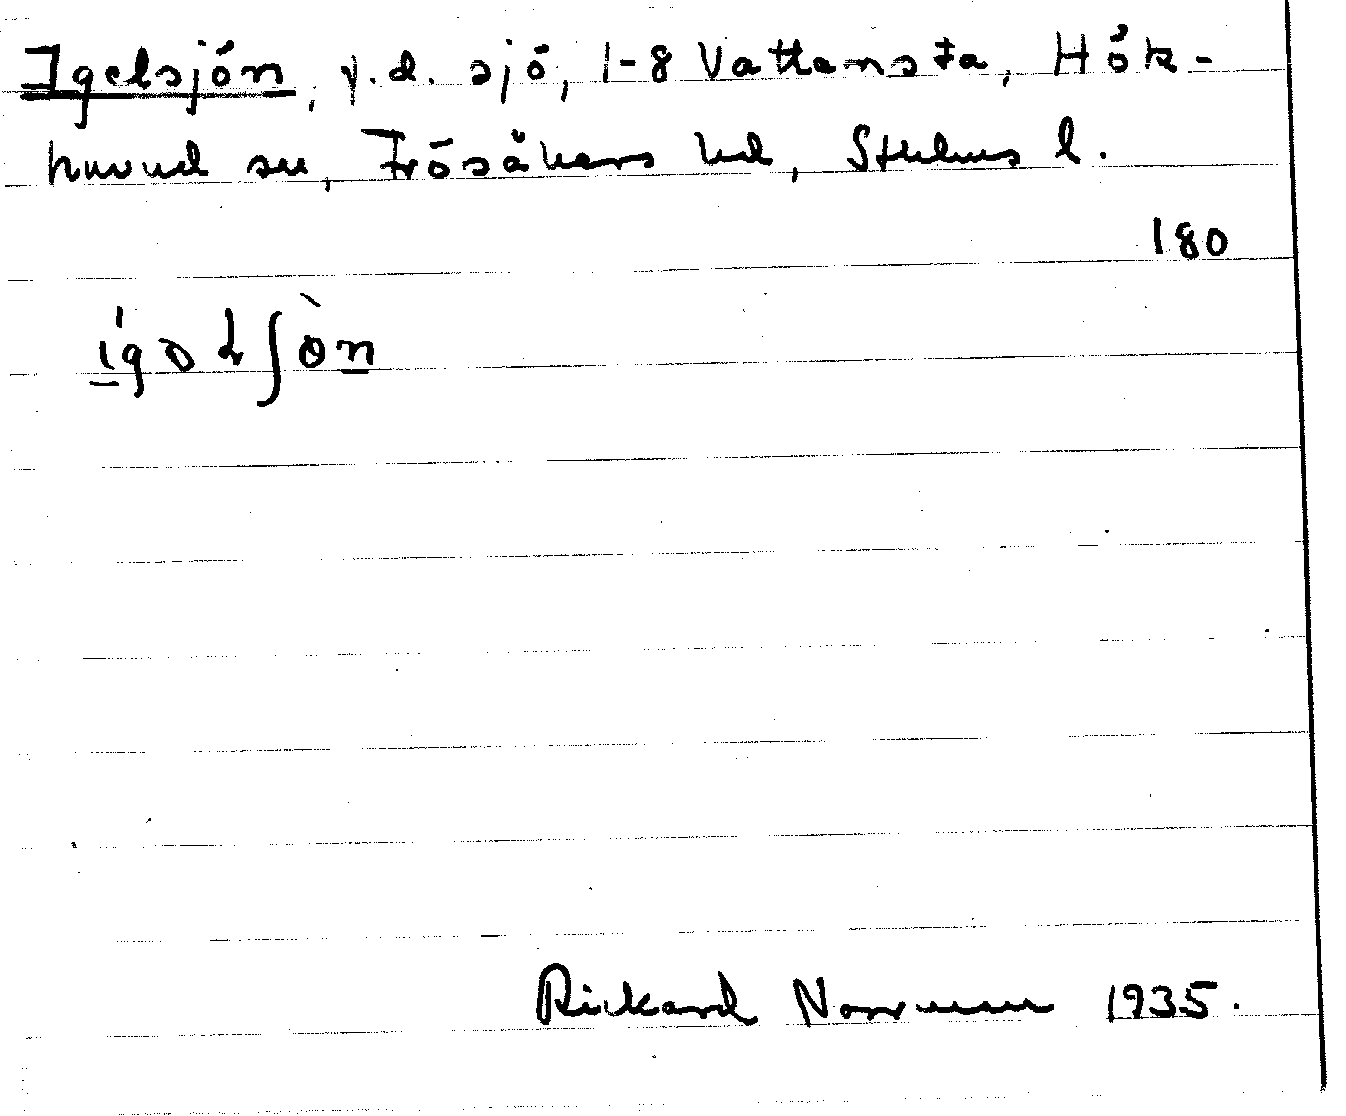 Igelsjön, f.d. sjö, 1-8 Vattensta, Hök-
huvud sn, Frösåkers hd, Sthlms l.
180
Rickard Norrman 1935.